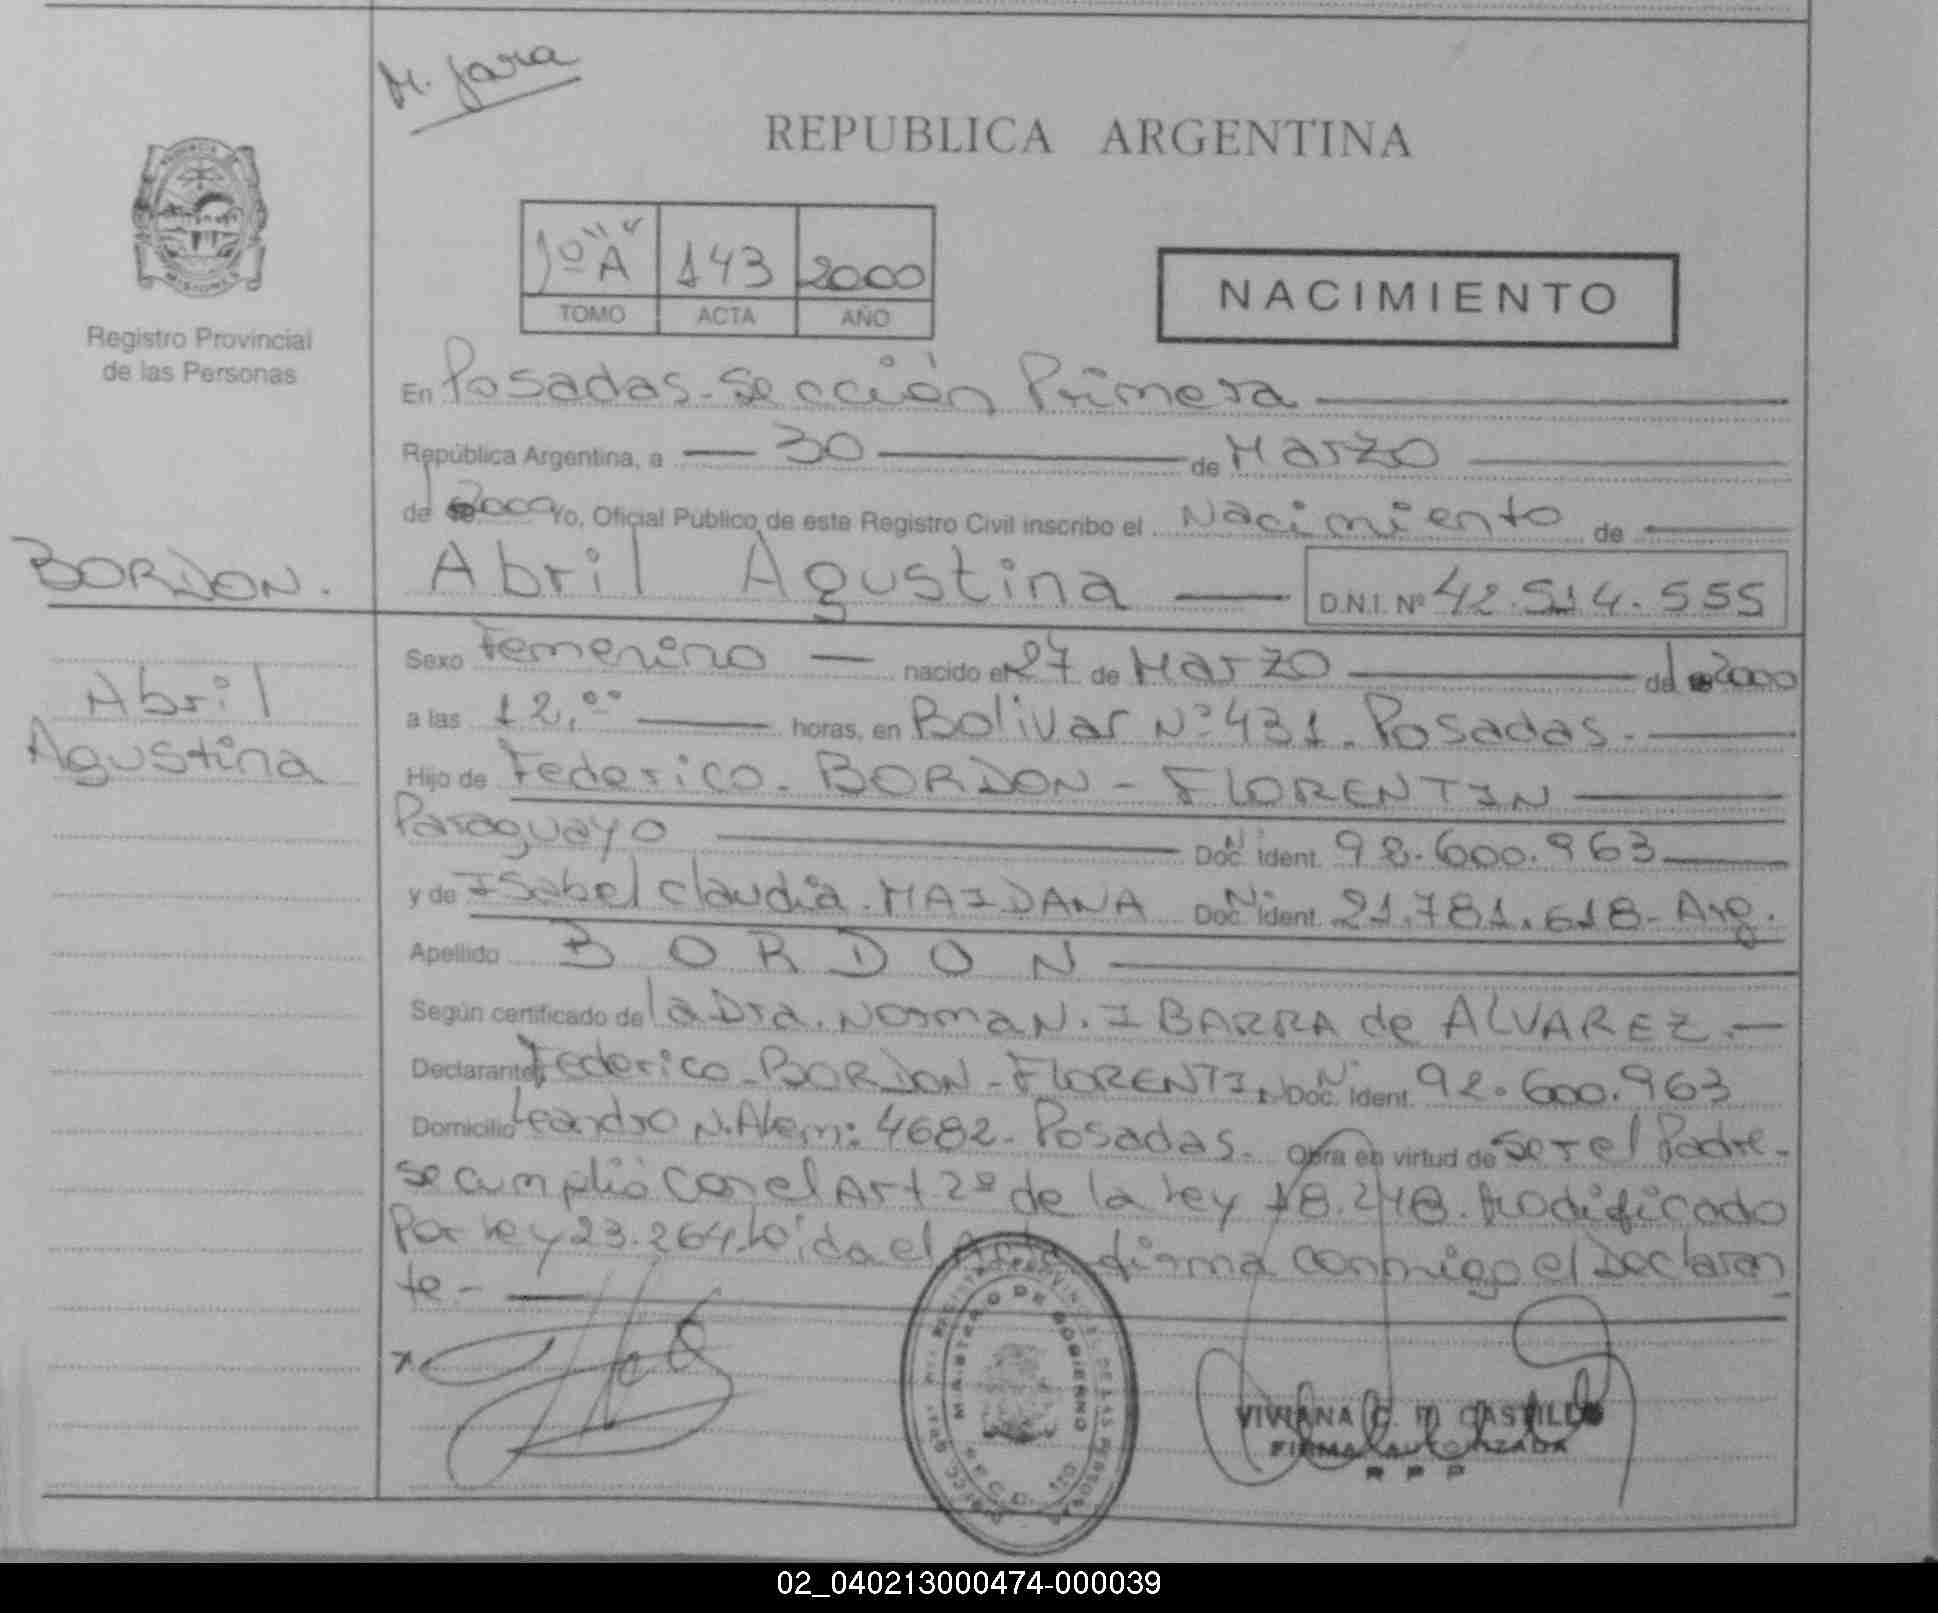 M. Jara
REPUBLICA ARGENTINA
1º "A" 143 2000
TOMO ACTA AÑO
NACIMIENTO
Registro Provincial
de las Personas
En Posadas - Sección Primera
República Argentina, a 30 de Marzo
del 2000 Yo, Oficial Público de este Registro Civil inscribo el Nacimiento de
BORDON.
Abril Agustina D.N.I. Nº 42.514.555
Abril
Agustina
Sexo Femenino nacido el 27 de Marzo del 2000
a las 12,ºº horas, en Bolivar Nº 431. Posadas.
Hijo de Federico. BORDON - FLORENTIN
Paraguayo Doc. Nº Ident. 92.600.963
y de Isabel Claudia. MAIDANA Doc. Nº Ident. 21.781.618- Arg.
Apellido BORDON
Según certificado de la Dra. Norma N. IBARRA de ALVAREZ.
Declarante Federico - BORDON - FLORENTIN Doc. Nº Ident. 92.600.963
Domicilio Leandro N. Alem: 4682- Posadas. Obra en virtud de ser el Padre.-
se cumplió con el Art 2º de la ley 18.248. Modificado
Por ley 23.264. Leída el Acta firma conmigo el Declaran
te.-
MINISTERIO DE GOBIERNO
VIVIANA C. M. CASTILLO
FIRMA AUTORIZADA
R P P
02_040213000474-000039